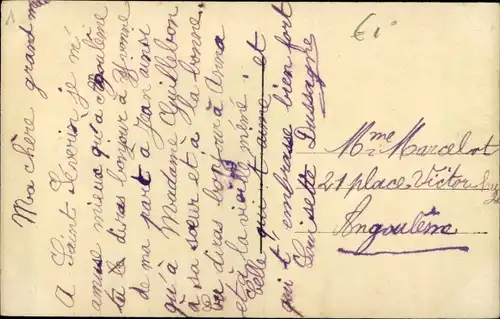 Ma chère grand mère
A Saint Séverin je m'
amuse mieux qu'à Angoulême
tu diras bonjour à Yvonne
de ma part à Jean ainsi
qu'à Madame Guillebon
à sa sœur et à sa bonne
tu diras bonjour à Anna
et à la vieille mémé.
Celle qui t'aime et
qui t'embrasse bien fort
Louisette
Mme Marcelot
21 place Victor
Angoulême